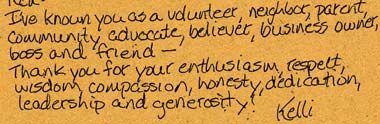 I've known you as a volunteer, neighbor, parent,
community advocate, believer, business owner,
boss and friend —
Thank you for your enthusiasm, respect,
wisdom, compassion, honesty, dedication,
leadership and generosity!
Kelli